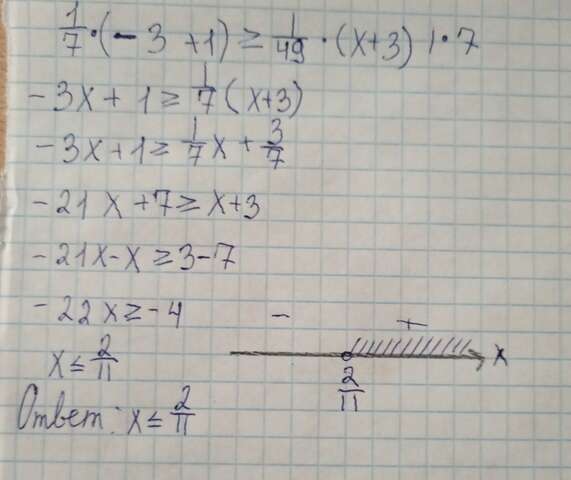 1/7 · (- 3 +1) ≥ 1/49 · (x+3) | · 7
-3x + 1 ≥ 1/7 (x+3)
-3x+1 ≥ 1/7 x + 3/7
-21x +7 ≥ x+3
-21x-x ≥ 3-7
-22x ≥ -4
- +
x ≤ 2/11
x
2/11
Ответ: x ≤ 2/11